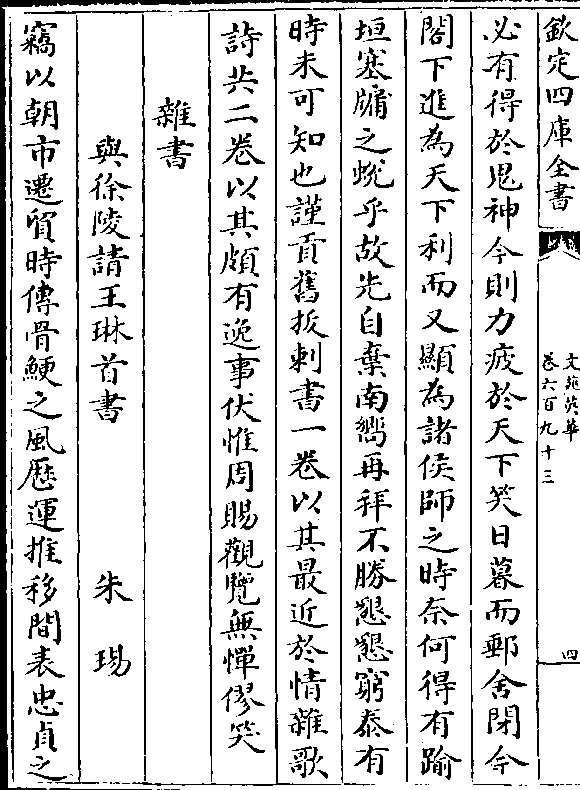 欽定四庫全書
文苑英華
卷六百九十三
四
必有得於鬼神今則力疲於天下矣日暮而郵舍閉今
閣下進為天下利而又顯為諸侯師之時奈何得有踰
垣塞牖之蛻乎故先自棄南嚮再拜不勝懇懇窮泰有
時未可知也謹貢舊扳刺書一卷以其最近於情雜歌
詩共二卷以其頗有逸事伏惟周賜觀覽無憚僇笑
雜書
與徐陵請王琳首書 朱瑒
竊以朝市遷貿時傳骨鯁之風歷運推移間表忠貞之